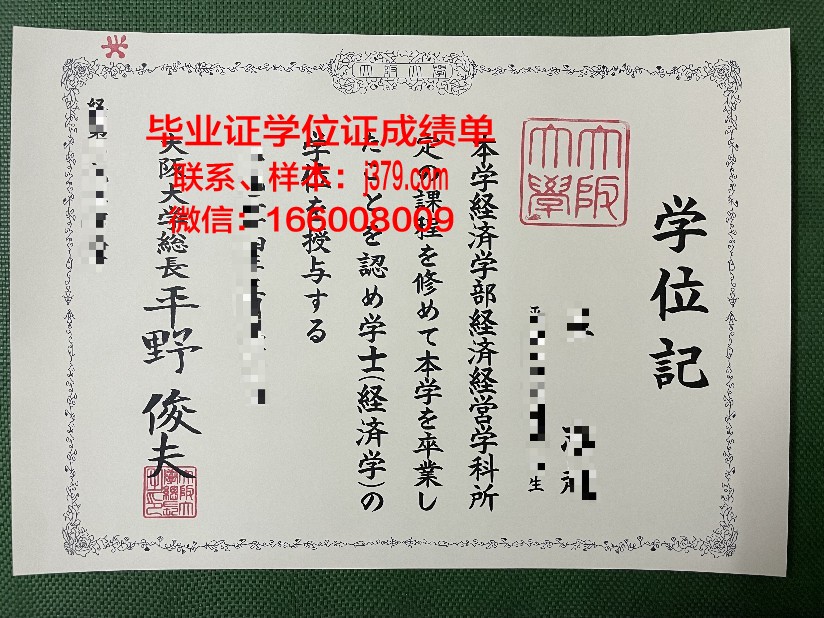 学位記
大阪
大學
生
本学経済学部経済経営学科所
定の課程を修めて本学を卒業し
たことを認め学士(経済学)の
学位を授与する
大阪大学総長 平野俊夫
毕业证学位证成绩单
联系、样本：j379.com
微信：166008009